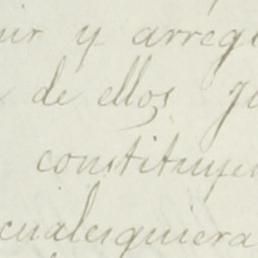 y arreg
de ellos
constituye
cualesquiera